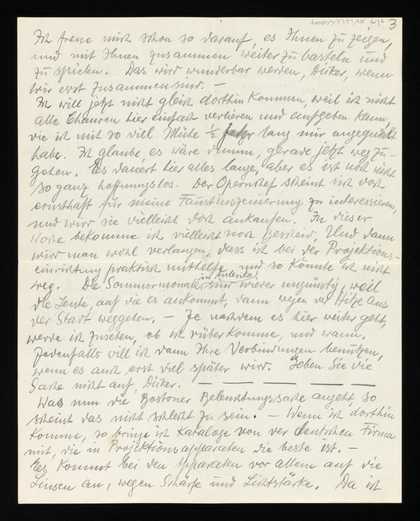 3
Ich freue mich schon so darauf, es Ihnen zu zeigen,
und mit Ihnen zusammen weiter zu basteln und
zu spielen. Das wird wunderbar werden, Duker, wenn
wir erst zusammen sind. —
Ich will jetzt nicht gleich dorthin kommen, weil ich nicht
alle Chancen hier einfach verlieren und aufgeben kann,
die ich mit so viel Mühe ½ Jahr lang mir angequält
habe. Ich glaube es wäre dumm, gerade jetzt weg zu-
gehen. Es dauert hier alles lange, aber es ist noch nicht
so ganz hoffnungslos. Der Opernchef scheint sich doch
ernsthaft für meine Faustinszenierung zu interessieren,
und wird sie vielleicht doch ankaufen. In dieser
Woche bekomme ich vielleicht noch Bescheid. Und dann
wird man wohl verlangen, dass ich bei der Projektions-
einrichtung praktisch mithelfe, und so könnte ich nicht
weg. Die Sommermonate sind hierzulande immer ungünstig, weil
die Leute, auf die es ankommt, dann wegen der Hitze aus
der Stadt weggehen. — Je nachdem es hier weiter geht,
werde ich zusehen, ob ich rüberkomme, und wann.
Jedenfalls will ich dann Ihre Verbindungen benützen,
wenn es auch erst viel später wird. Geben Sie die
Sache nicht auf, Duker. — — — — — — —
Was nun die Bostoner Beleuchtungssache angeht, so
scheint das nicht schlecht zu sein. — Wenn ich dorthin
komme, so bringe ich Kataloge von der deutschen Firma
mit, die in Projektionsapparaten die beste ist. —
Es kommt bei den Apparaten vor allem auf die
Linsen an, wegen Schärfe und Lichtstärke. Da ist